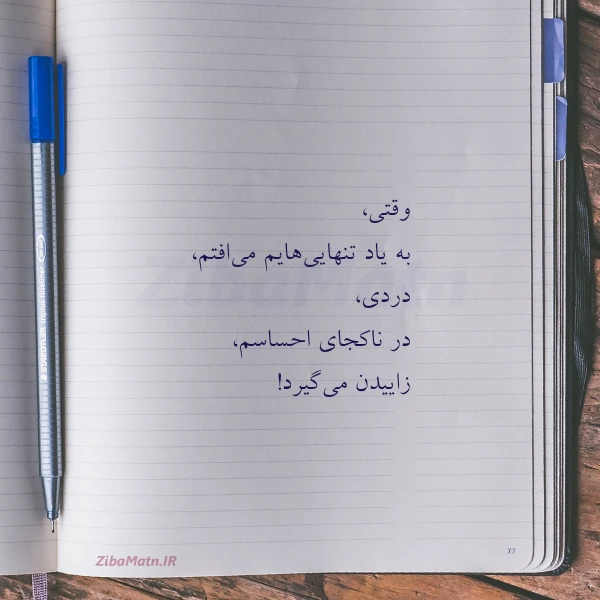 وقتی،
به یاد تنهایی‌هایم می‌افتم،
دردی،
در ناکجای احساسم،
زاییدن می‌گیرد!
ZibaMatn
STAEDTLER triplus fineliner
77
ZibaMatn.IR